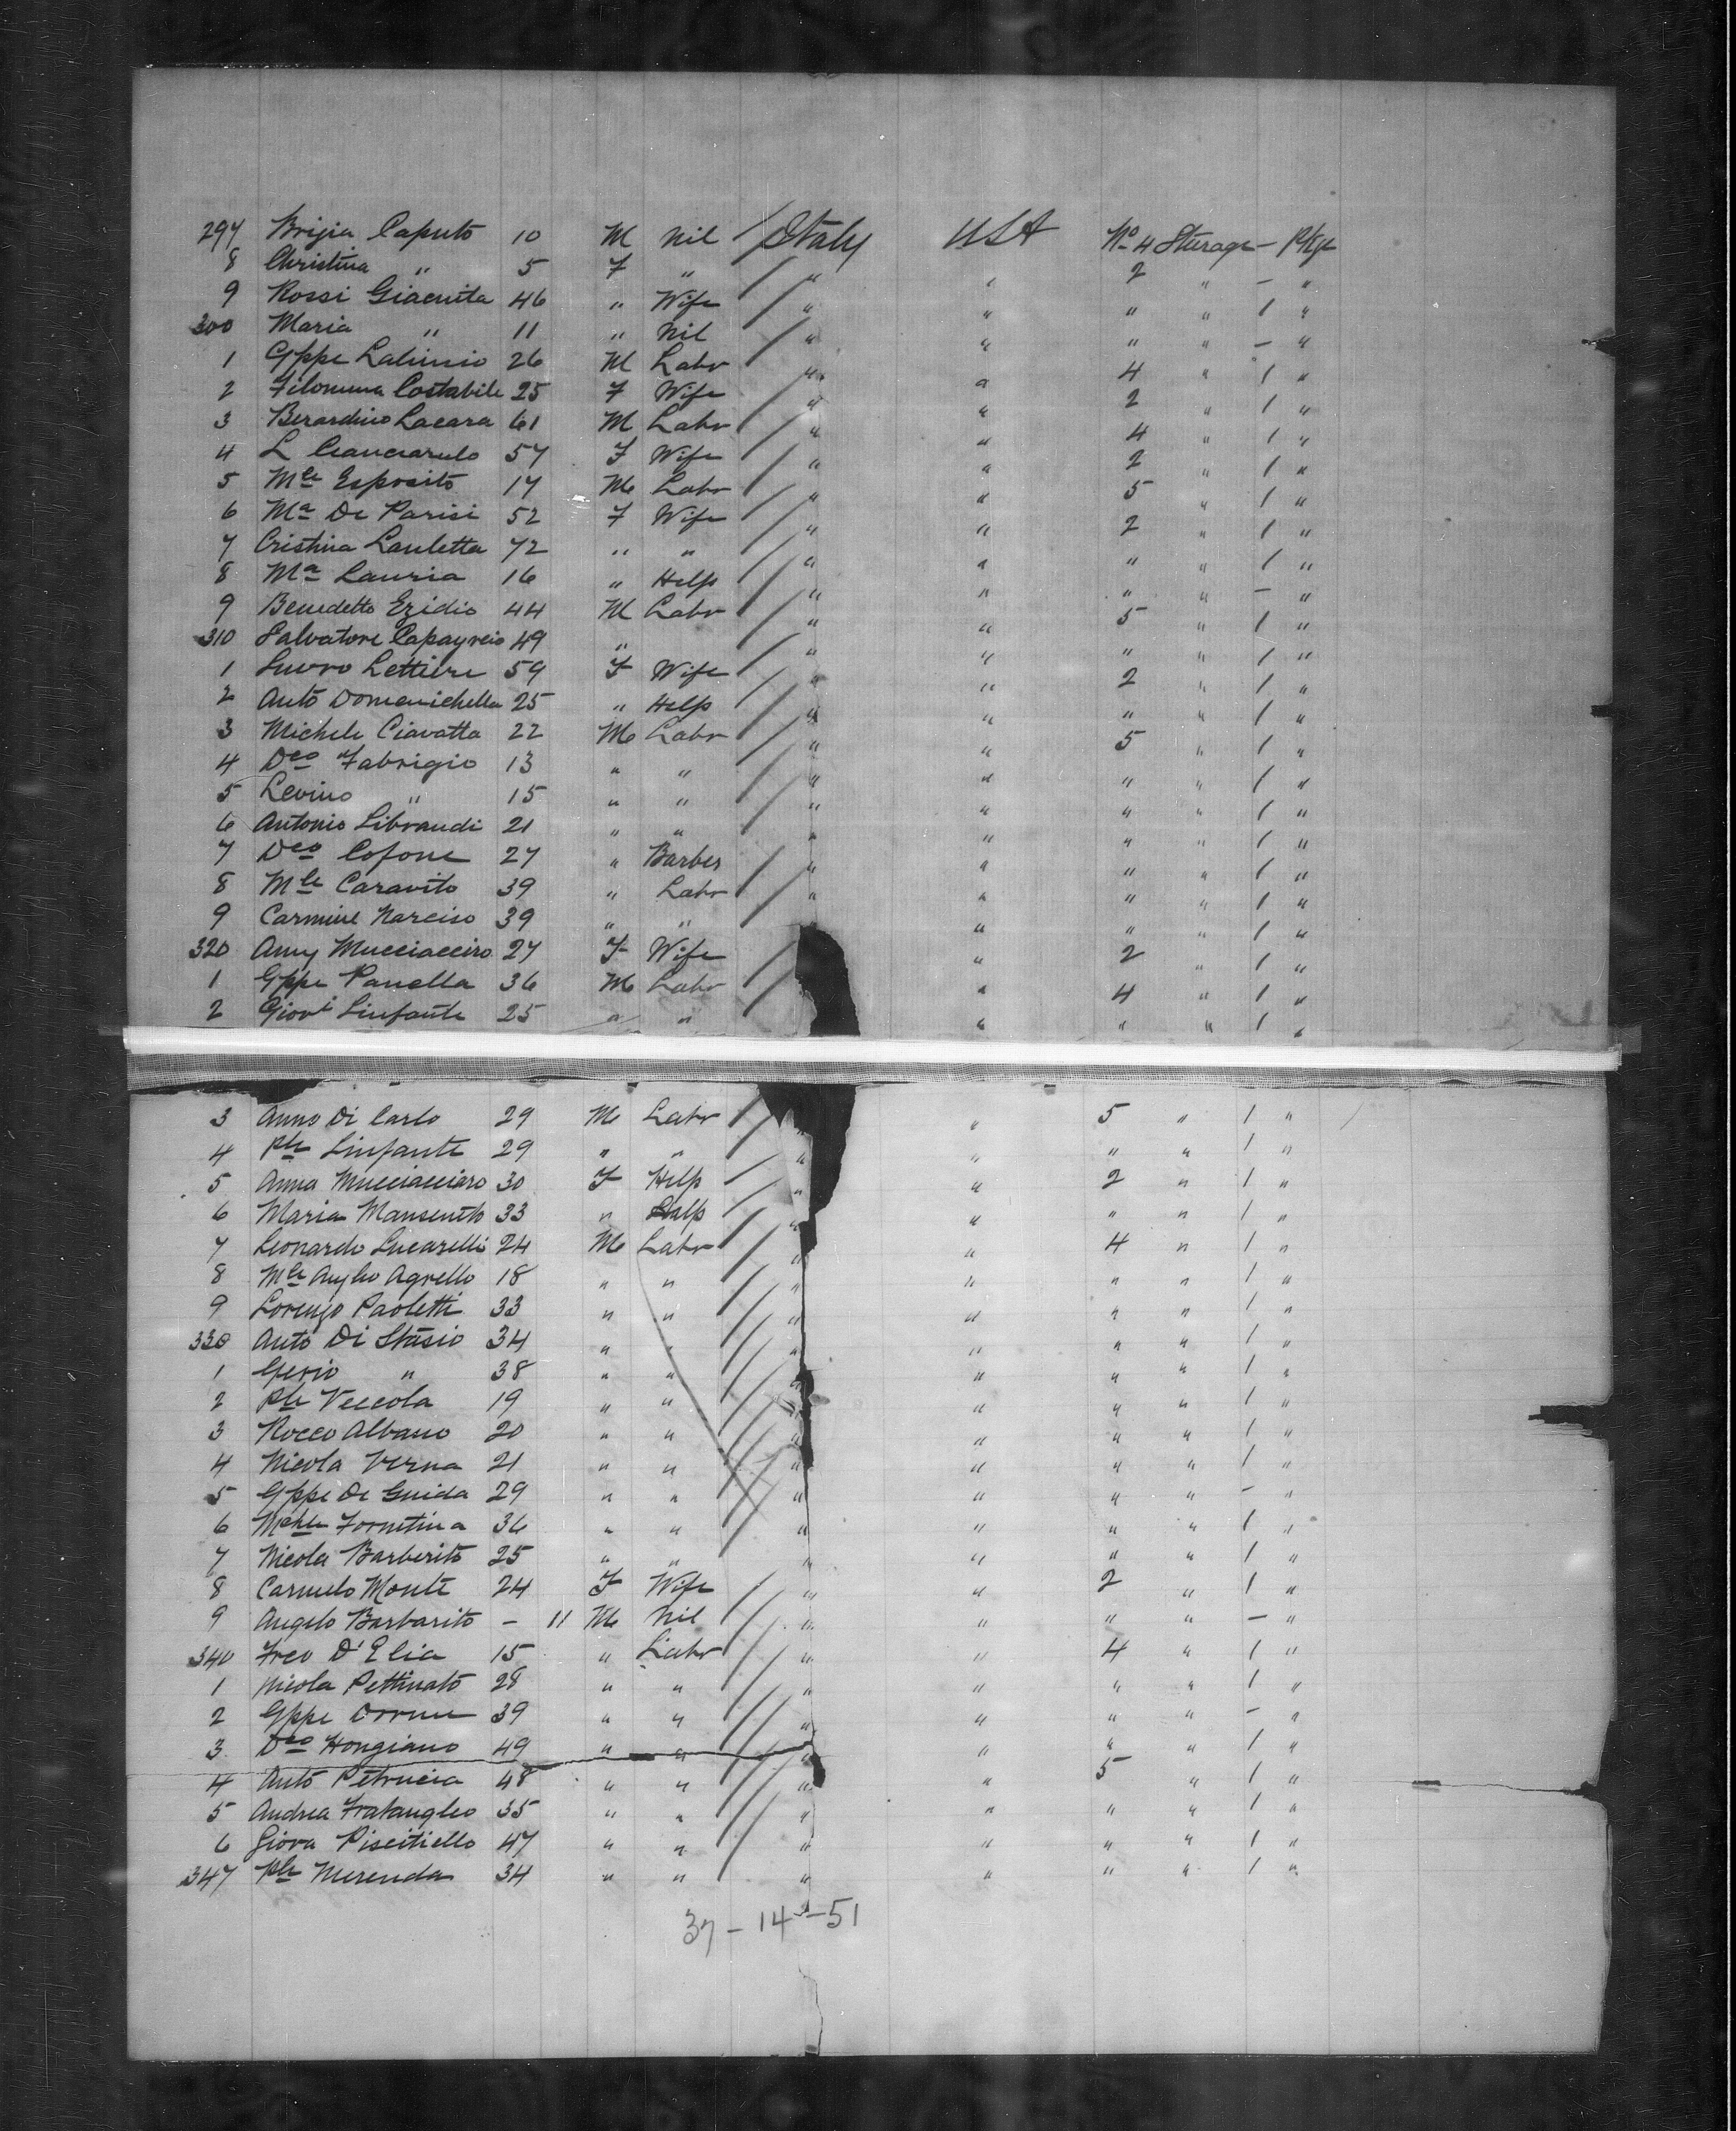 297 Brizia Caputo 10 M Nil / Italy USA No 4 Sturage - Pkge
8 Christina " 5 F " / " " 2 " - "
9 Rossi Giacnita 46 " Wife / " " " " 1 "
300 Maria " 11 " Nil / " " " " - "
1 Gppe Labinio 26 M Labr / " " 4 " 1 "
2 Filomena Costabile 25 F Wife / " " 2 " 1 "
3 Berardino Lacara 61 M Labr / " " 4 " 1 "
4 L Cianciarulo 57 F Wife / " " 2 " 1 "
5 Mle Esposito 17 M Labr / " " 5 " 1 "
6 Ma De Parisi 52 F Wife / " " 2 " 1 "
7 Cristina Lauletta 72 " " / " " " " 1 "
8 Ma Lauria 16 " Help / " " " " - "
9 Benedetto Ezidio 44 M Labr / " " 5 " 1 "
310 Salvatore Capayreis 49 " / " " " " 1 "
1 Lettiere 59 F Wife / " " 2 " 1 "
2 Anto Domenichella 25 " Help / " " " " 1 "
3 Michele Ciavatta 22 M Labr / " " 5 " 1 "
4 Dco Fabrigio 13 " " / " " " " 1 "
5 Levino " 15 " " / " " " " 1 "
6 Antonio Librandi 21 " " " " " " 1 "
7 Dco Cofone 27 " Barber / " " " " 1 "
8 Mle Caravito 39 " Labr / " " " " 1 "
9 Carmine Narciso 39 " " " " " 1 "
320 Amy Mucciacciro 27 F Wife / " 2 " 1 "
1 Gppe Panella 36 M Labr / " 4 " 1 "
2 Giovi Linfante 25 " " " " " 1 "
3 Anno Di Carlo 29 M Labr / " " 5 " 1 "
4 Ple Linfante 29 " " / " " " " 1 "
5 Anna Mucciacciaro 30 F Help / " " 2 " 1 "
6 Maria Mansenito 33 " Help / " " " " 1 "
7 Leonardo Lucarelli 24 M Labr / " " 4 " 1 "
8 Mle Anglo Agrello 18 " " / " " " " 1 "
9 Lorenzo Paoletti 33 " " / " " " " 1 "
330 Anto Di Stasio 34 " " / " " " " 1 "
1 Gerio " 38 " " / " " " " 1 "
2 Ple Veccola 19 " " / " " " " 1 "
3 Rocco Albano 20 " " / " " " " 1 "
4 Nicola Verna 21 " " / " " " " 1 "
5 Gppe De Guida 29 " " / " " " " - "
6 Mchle Forntina 36 " " / " " " " 1 "
7 Nicola Barberito 25 " " " " " " 1 "
8 Carmelo Monte 24 F Wife / " " 2 " 1 "
9 Angelo Barbarito - 11 M Nil / " " " " - "
340 Frco D'Elia 15 " Labr / " " 4 " 1 "
1 Nicola Pettinato 28 " " / " " " " 1 "
2 Gppe 39 " " / " " " " - "
3 Dco Hongiano 49 " " / " " " " 1 "
4 Anto Petrucia 48 " " / " " 5 " 1 "
5 Andrea Fratanglo 35 " " / " " " " 1 "
6 Giova Piscitiello 47 " " / " " " " 1 "
347 Ple Merenda 34 " " " " " " 1 "
37 - 14 - 51